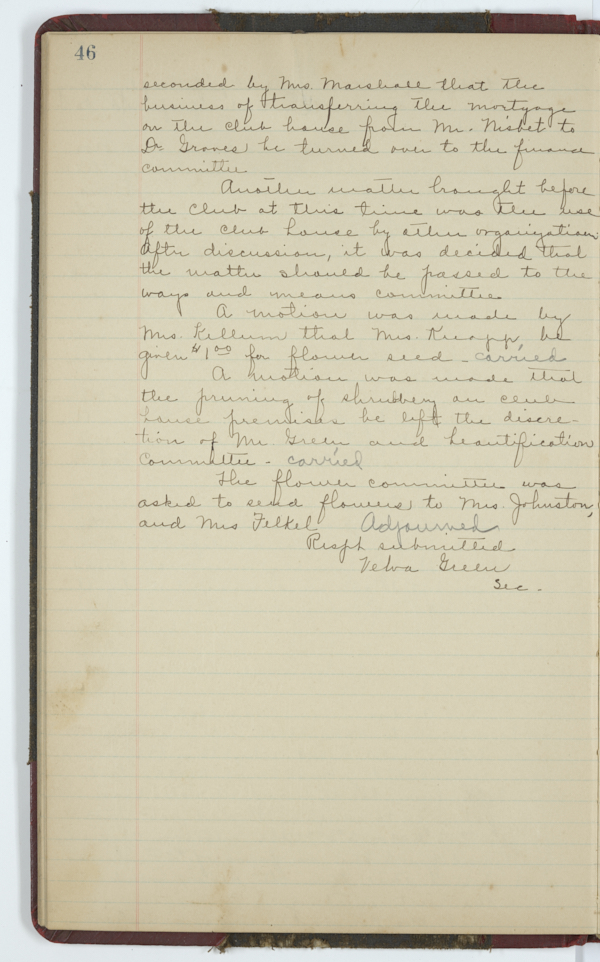 46
seconded by Mrs. Marshall that the
business of transferring the mortgage
on the club house from Mr. Nisbet to
Dr. Groves be turned over to the finance
committee
Another matter brought before
the club at this time was the use
of the club house by other organizations
After discussion, it was decided that
the matter should be passed to the
ways and means committee
A motion was made by
Mrs. Killum that Mrs. Knapp, be
given $1.00 for flower seed - carried
A motion was made that
the pruning of shrubbery on club
house premises be left the discre-
tion of Mr. Green and beautification
Committee - carried
The flower committee was
asked to send flowers to Mrs. Johnston,
and Mrs Felkel Adjourned
Respt submitted
Velva Green
Sec.